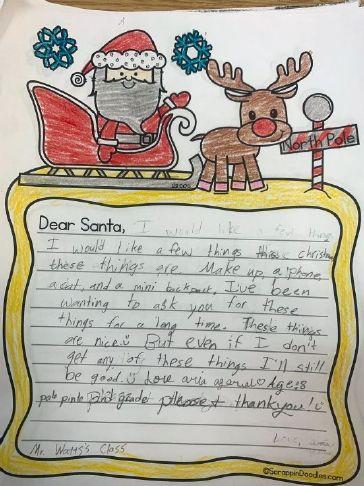 North Pole
Dear Santa, I would like a few things
I would like a few things this christmas
these things are Make up, a phone,
a cat, and a mini backpack, I've been
wanting to ask you for these
things for a long time. These things
are nice. But even if I don't
get any of these things I'll still
be good. Love aria Age:8
grade please thankyou!
Love,
Mr. Watts's Class
©ScrappinDoodles.com